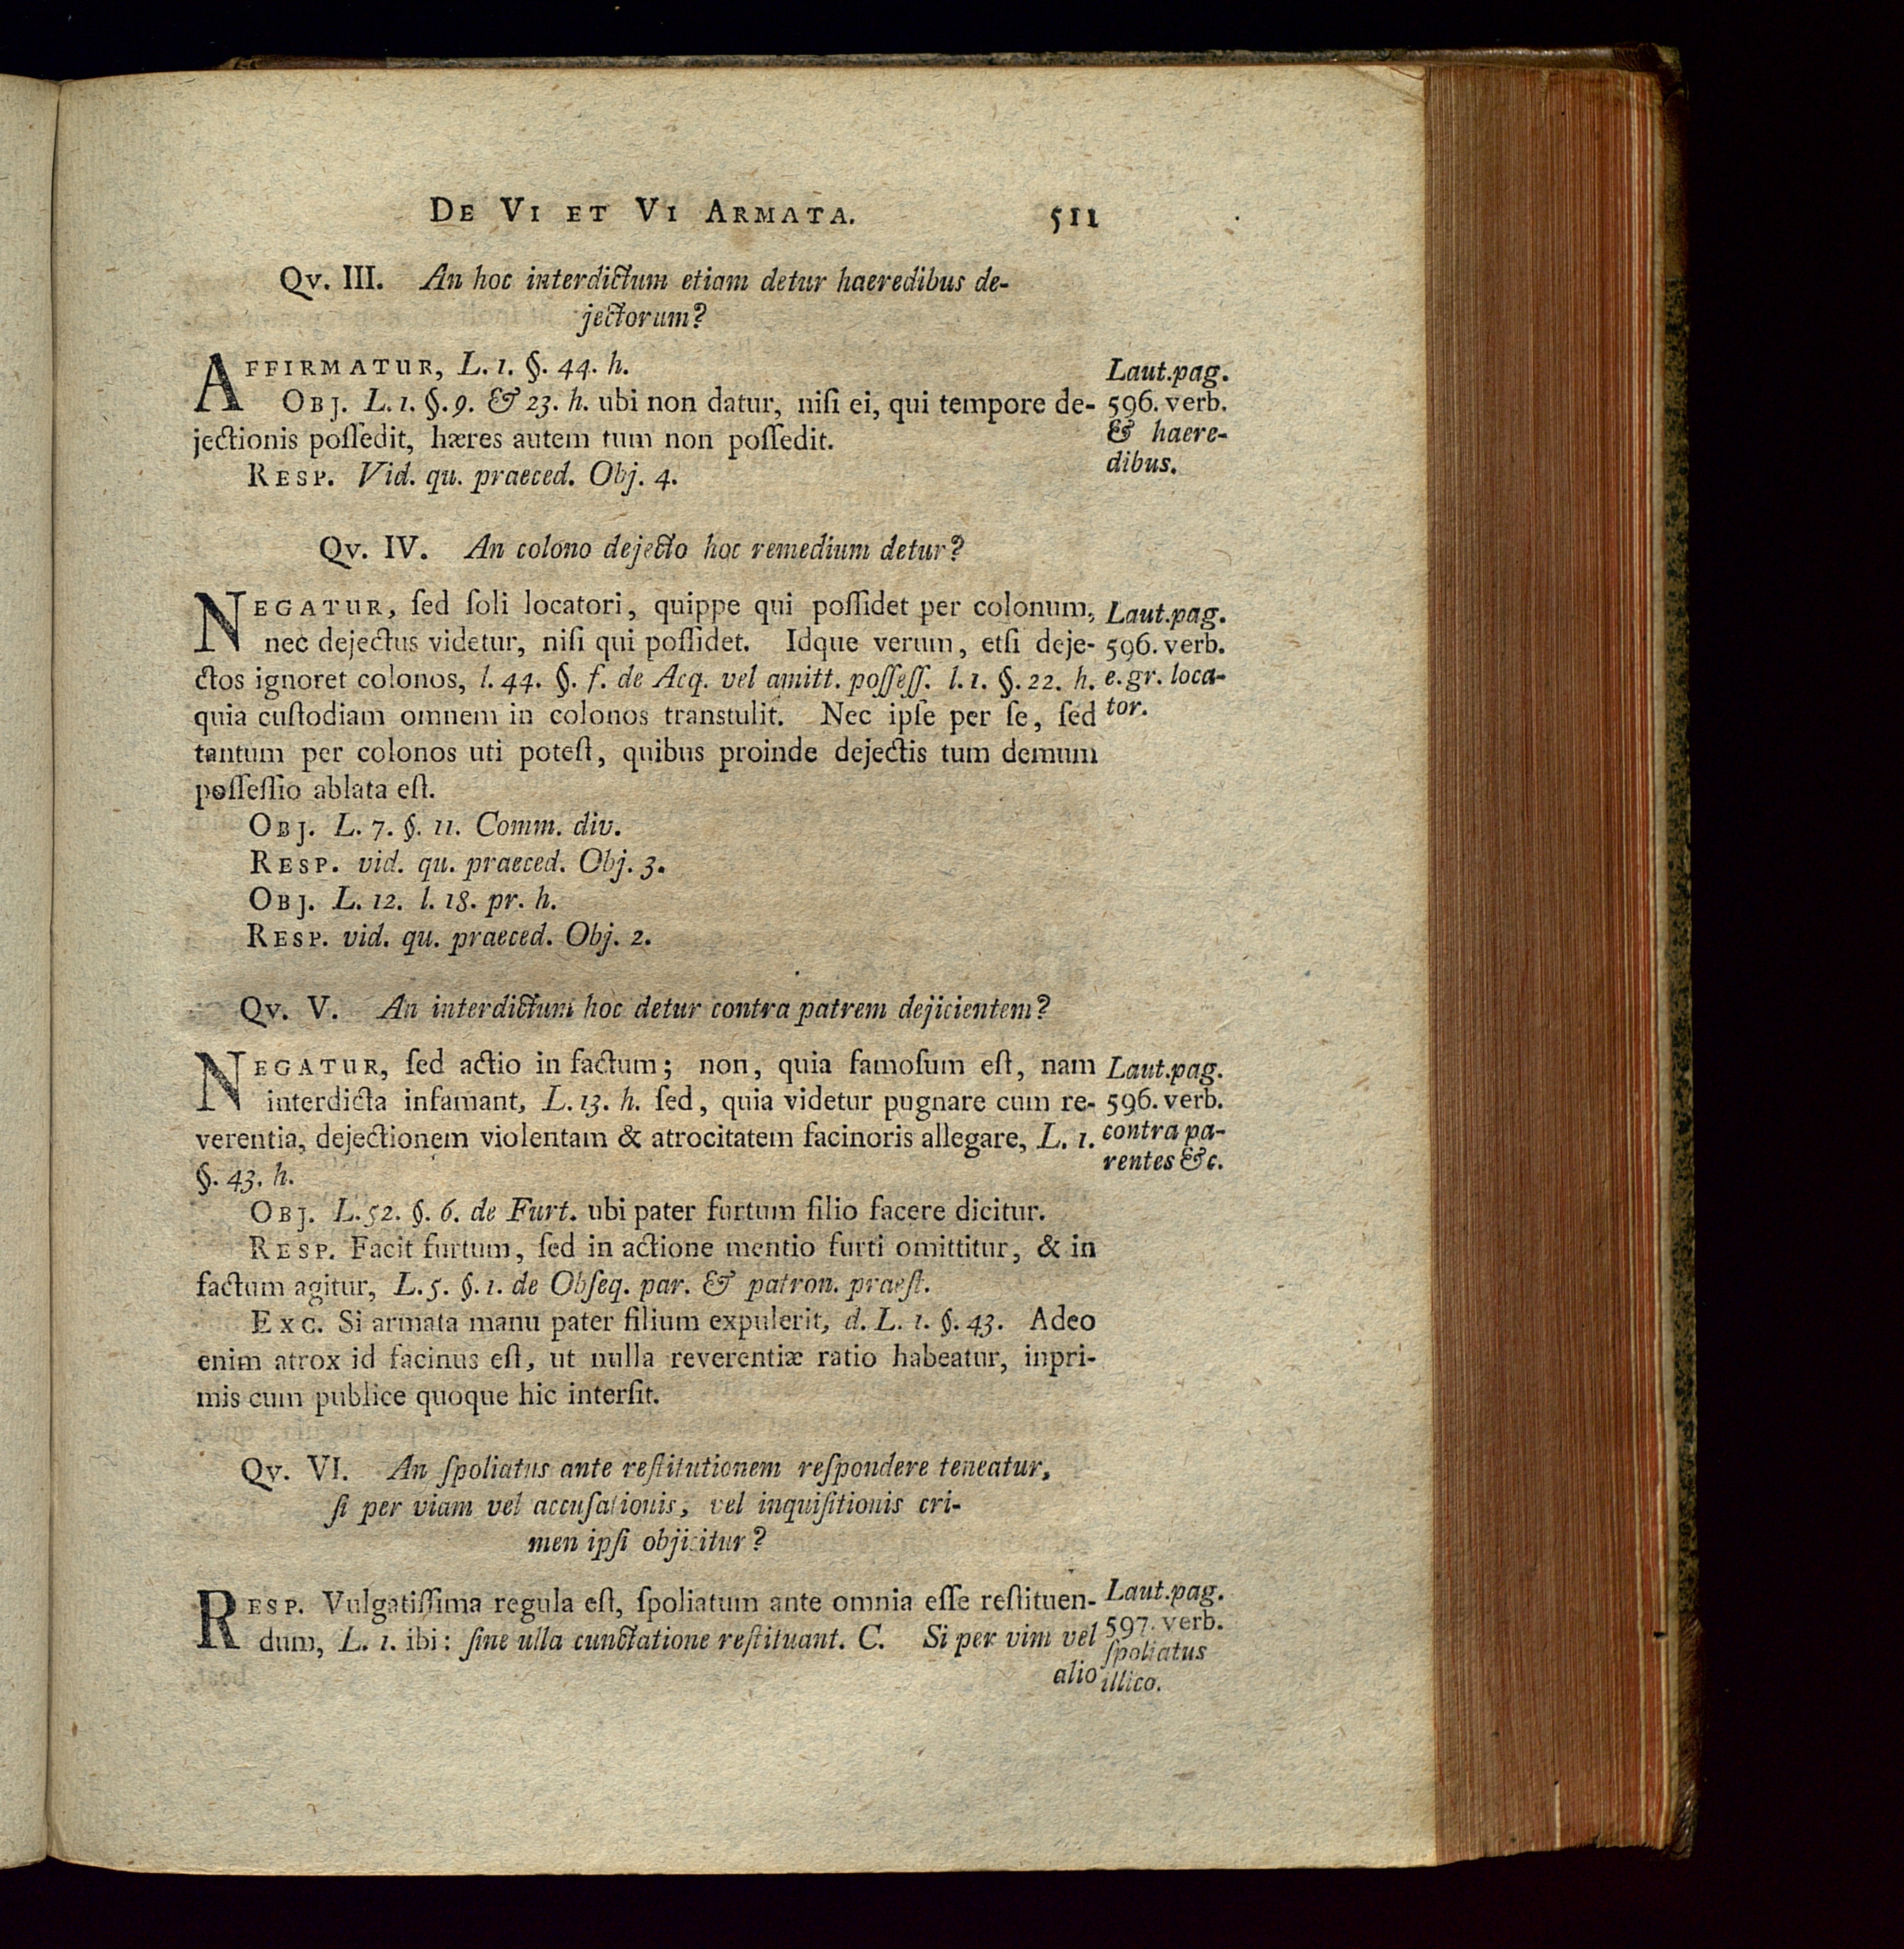 DE VI ET VI ARMATA. 511
Qv. III. An hoc interdictum etiam detur haeredibus de-
jectorum?
AFFIRMATUR, L. 1. §. 44. h.
OBJ. L. 1. §. 9. & 23. h. ubi non datur, niſi ei, qui tempore de-
jectionis poſſedit, hæres autem tum non poſſedit.
RESP. Vid. qu. praeced. Obj. 4.
Laut. pag.
596. verb.
& haere-
dibus.
Qv. IV. An colono dejecto hoc remedium detur?
NEGATUR, ſed ſoli locatori, quippe qui poſſidet per colonum,
nec dejectus videtur, niſi qui poſſidet. Idque verum, etſi deje-
ctos ignoret colonos, l. 44. §. f. de Acq. vel amitt. poſſeſſ. l. 1. §. 22. h.
quia cuſtodiam omnem in colonos transtulit. Nec ipſe per ſe, ſed
tantum per colonos uti poteſt, quibus proinde dejectis tum demum
poſſeſſio ablata eſt.
Laut. pag.
596. verb.
e. gr. loca-
tor.
OBJ. L. 7. §. 11. Comm. div.
RESP. vid. qu. praeced. Obj. 3.
OBJ. L. 12. l. 18. pr. h.
RESP. vid. qu. praeced. Obj. 2.
Qv. V. An interdictum hoc detur contra patrem dejicientem?
NEGATUR, ſed actio in factum; non, quia famoſum eſt, nam
interdicta infamant, L. 13. h. ſed, quia videtur pugnare cum re-
verentia, dejectionem violentam & atrocitatem facinoris allegare, L. 1.
§. 43. h.
Laut. pag.
596. verb.
contra pa-
rentes &c.
OBJ. L. 52. §. 6. de Furt. ubi pater furtum filio facere dicitur.
RESP. Facit furtum, ſed in actione mentio furti omittitur, & in
factum agitur, L. 5. §. 1. de Obſeq. par. & patron. praeſt.
EXC. Si armata manu pater filium expulerit, d. L. 1. §. 43. Adeo
enim atrox id facinus eſt, ut nulla reverentiæ ratio habeatur, inpri-
mis cum publice quoque hic interſit.
Qv. VI. An ſpoliatus ante reſtitutionem reſpondere teneatur,
ſi per viam vel accuſationis, vel inquiſitionis cri-
men ipſi objicitur?
RESP. Vulgatiſſima regula eſt, ſpoliatum ante omnia eſſe reſtituen-
dum, L. 1. ibi: ſine ulla cunctatione reſtituant. C. Si per vim vel
alio
Laut. pag.
597. verb.
ſpoliatus
illico.